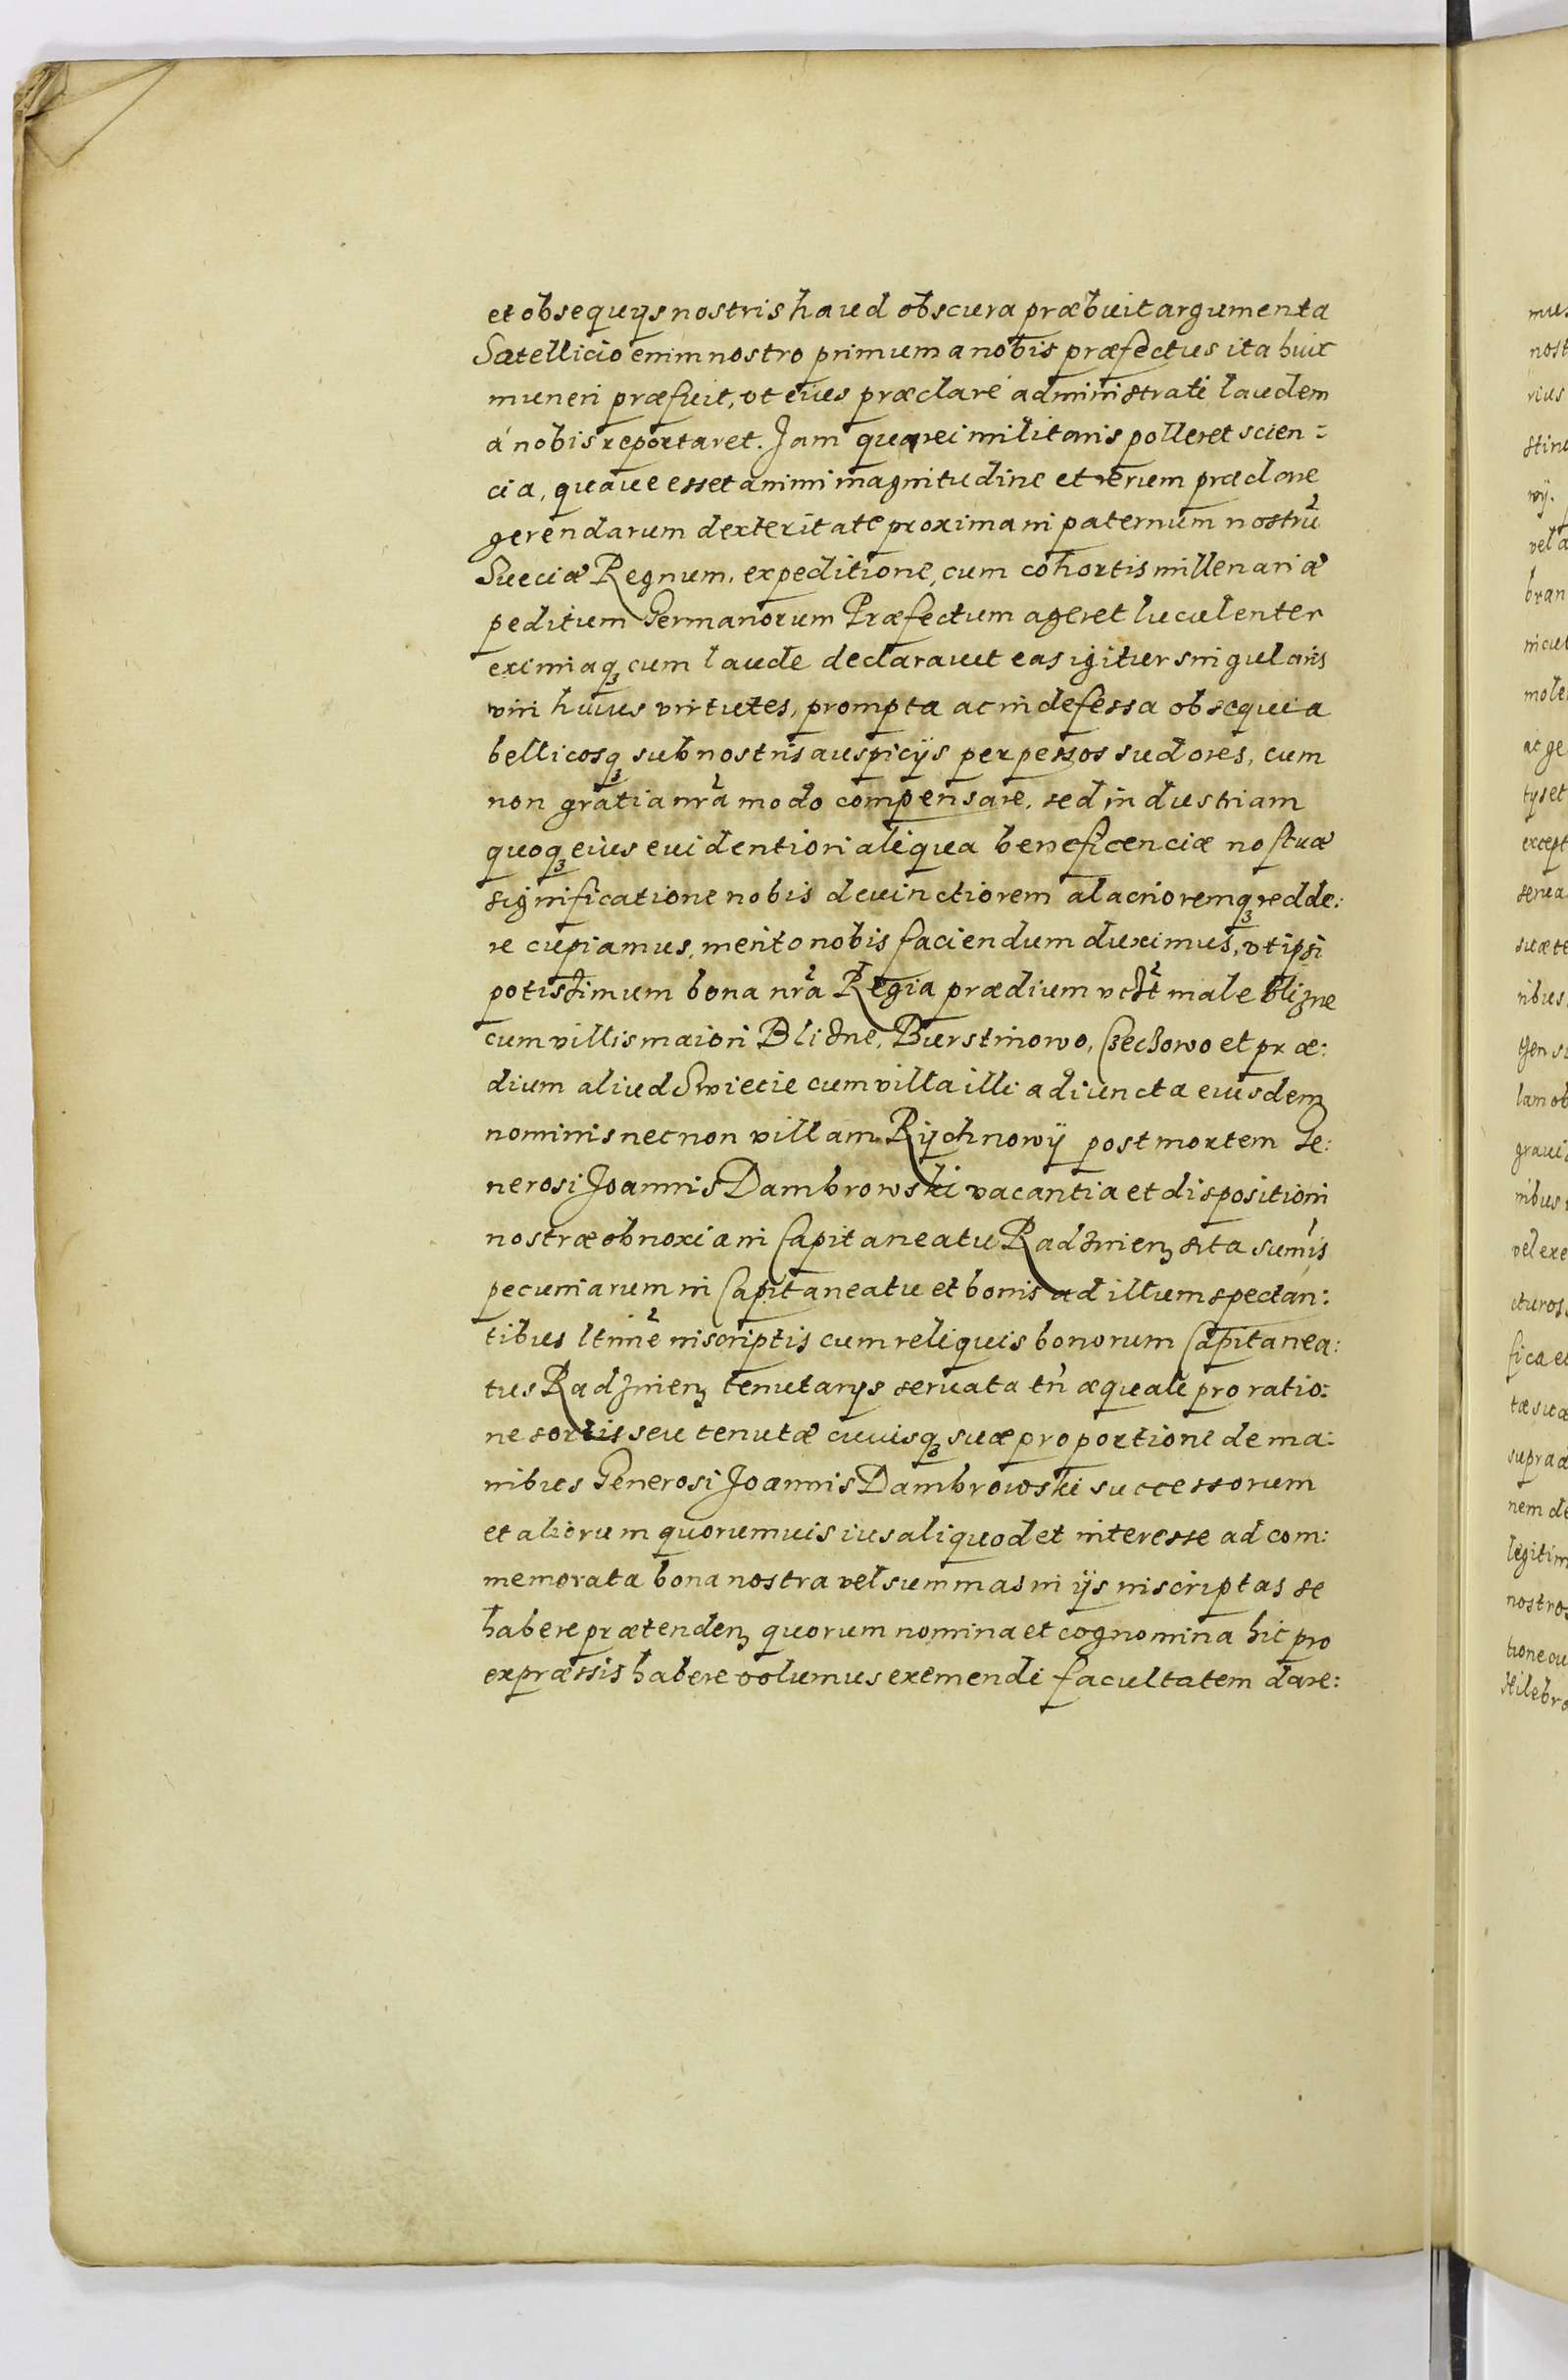 et obsequijs nostris haud obscura præbuit argumenta
Satellicio enim nostro primum a nobis præfectus ita huic
muneri præfuit, vt eius præclare administrati laudem
á nobis reportaret. Jam qua rei militaris polleret scien=
cia, quaue esset animi magnitudine et rerum præclare
gerendarum dexteritate proxima in paternum nostrũ
Sueciæ Regnum, expeditione, cum cohortis millenariæ
peditum Germanorum Præfectum ageret luculenter
eximiaqꝫ cum laude declarauit eas igitur singularis
viri huius virtutes, prompta ac indefessa obsequia
bellicosqꝫ sub nostris auspicijs perpessos sudores, cum
non gratia nr̃a modo compensare, sed industriam
quoqꝫ eius euidentiori aliqua beneficenciæ nostræ
significatione nobis deuinctiorem alacrioremqꝫ redde:
re cupiamus, merito nobis faciendum duximus, vt ipsi
potissimum bona nr̃a Regia prædium male Blizne
cum villis maiori Blidne, Burstinowo, Czeczowo et præ:
dium aliud Swiecie cum villa illi adiuncta eiusdem
nominis necnon villam Rijchnowÿ post mortem Ge:
nerosi Joannis Dambrowski vacantia et dispositioni
nostræ obnoxia in Capitaneatu Radzinenꝫ sita sum̃is
pecuniarum in Capitaneatu et bonis ad illum spectan:
tibus ltimẽ inscriptis cum reliquis bonorum Capitanea:
tus Radzinenꝫ tenutarijs seruata tñ æquali pro ratio:
ne sortis seu tenutæ cuiusqꝫ suæ proportione de ma:
nibus Generosi Joannis Dambrowski successorum
et aliorum quorumuis ius aliquod et interesse ad com:
memorata bona nostra vel summas in ijs inscriptas se
habere prætendenꝫ quorum nomina et cognomina hic pro
expræssis habere volumus exemendi facultatem dare: